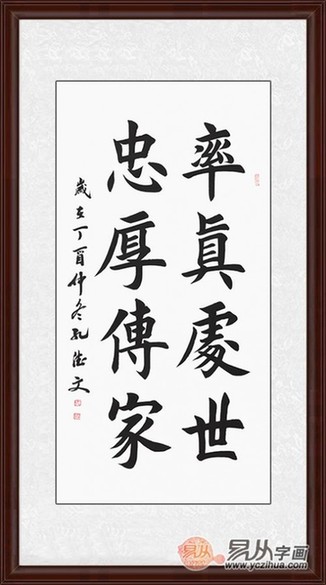 率眞處世
忠厚傳家
歲在丁酉仲冬孔德文
易从
易从字画
www.yczihua.com